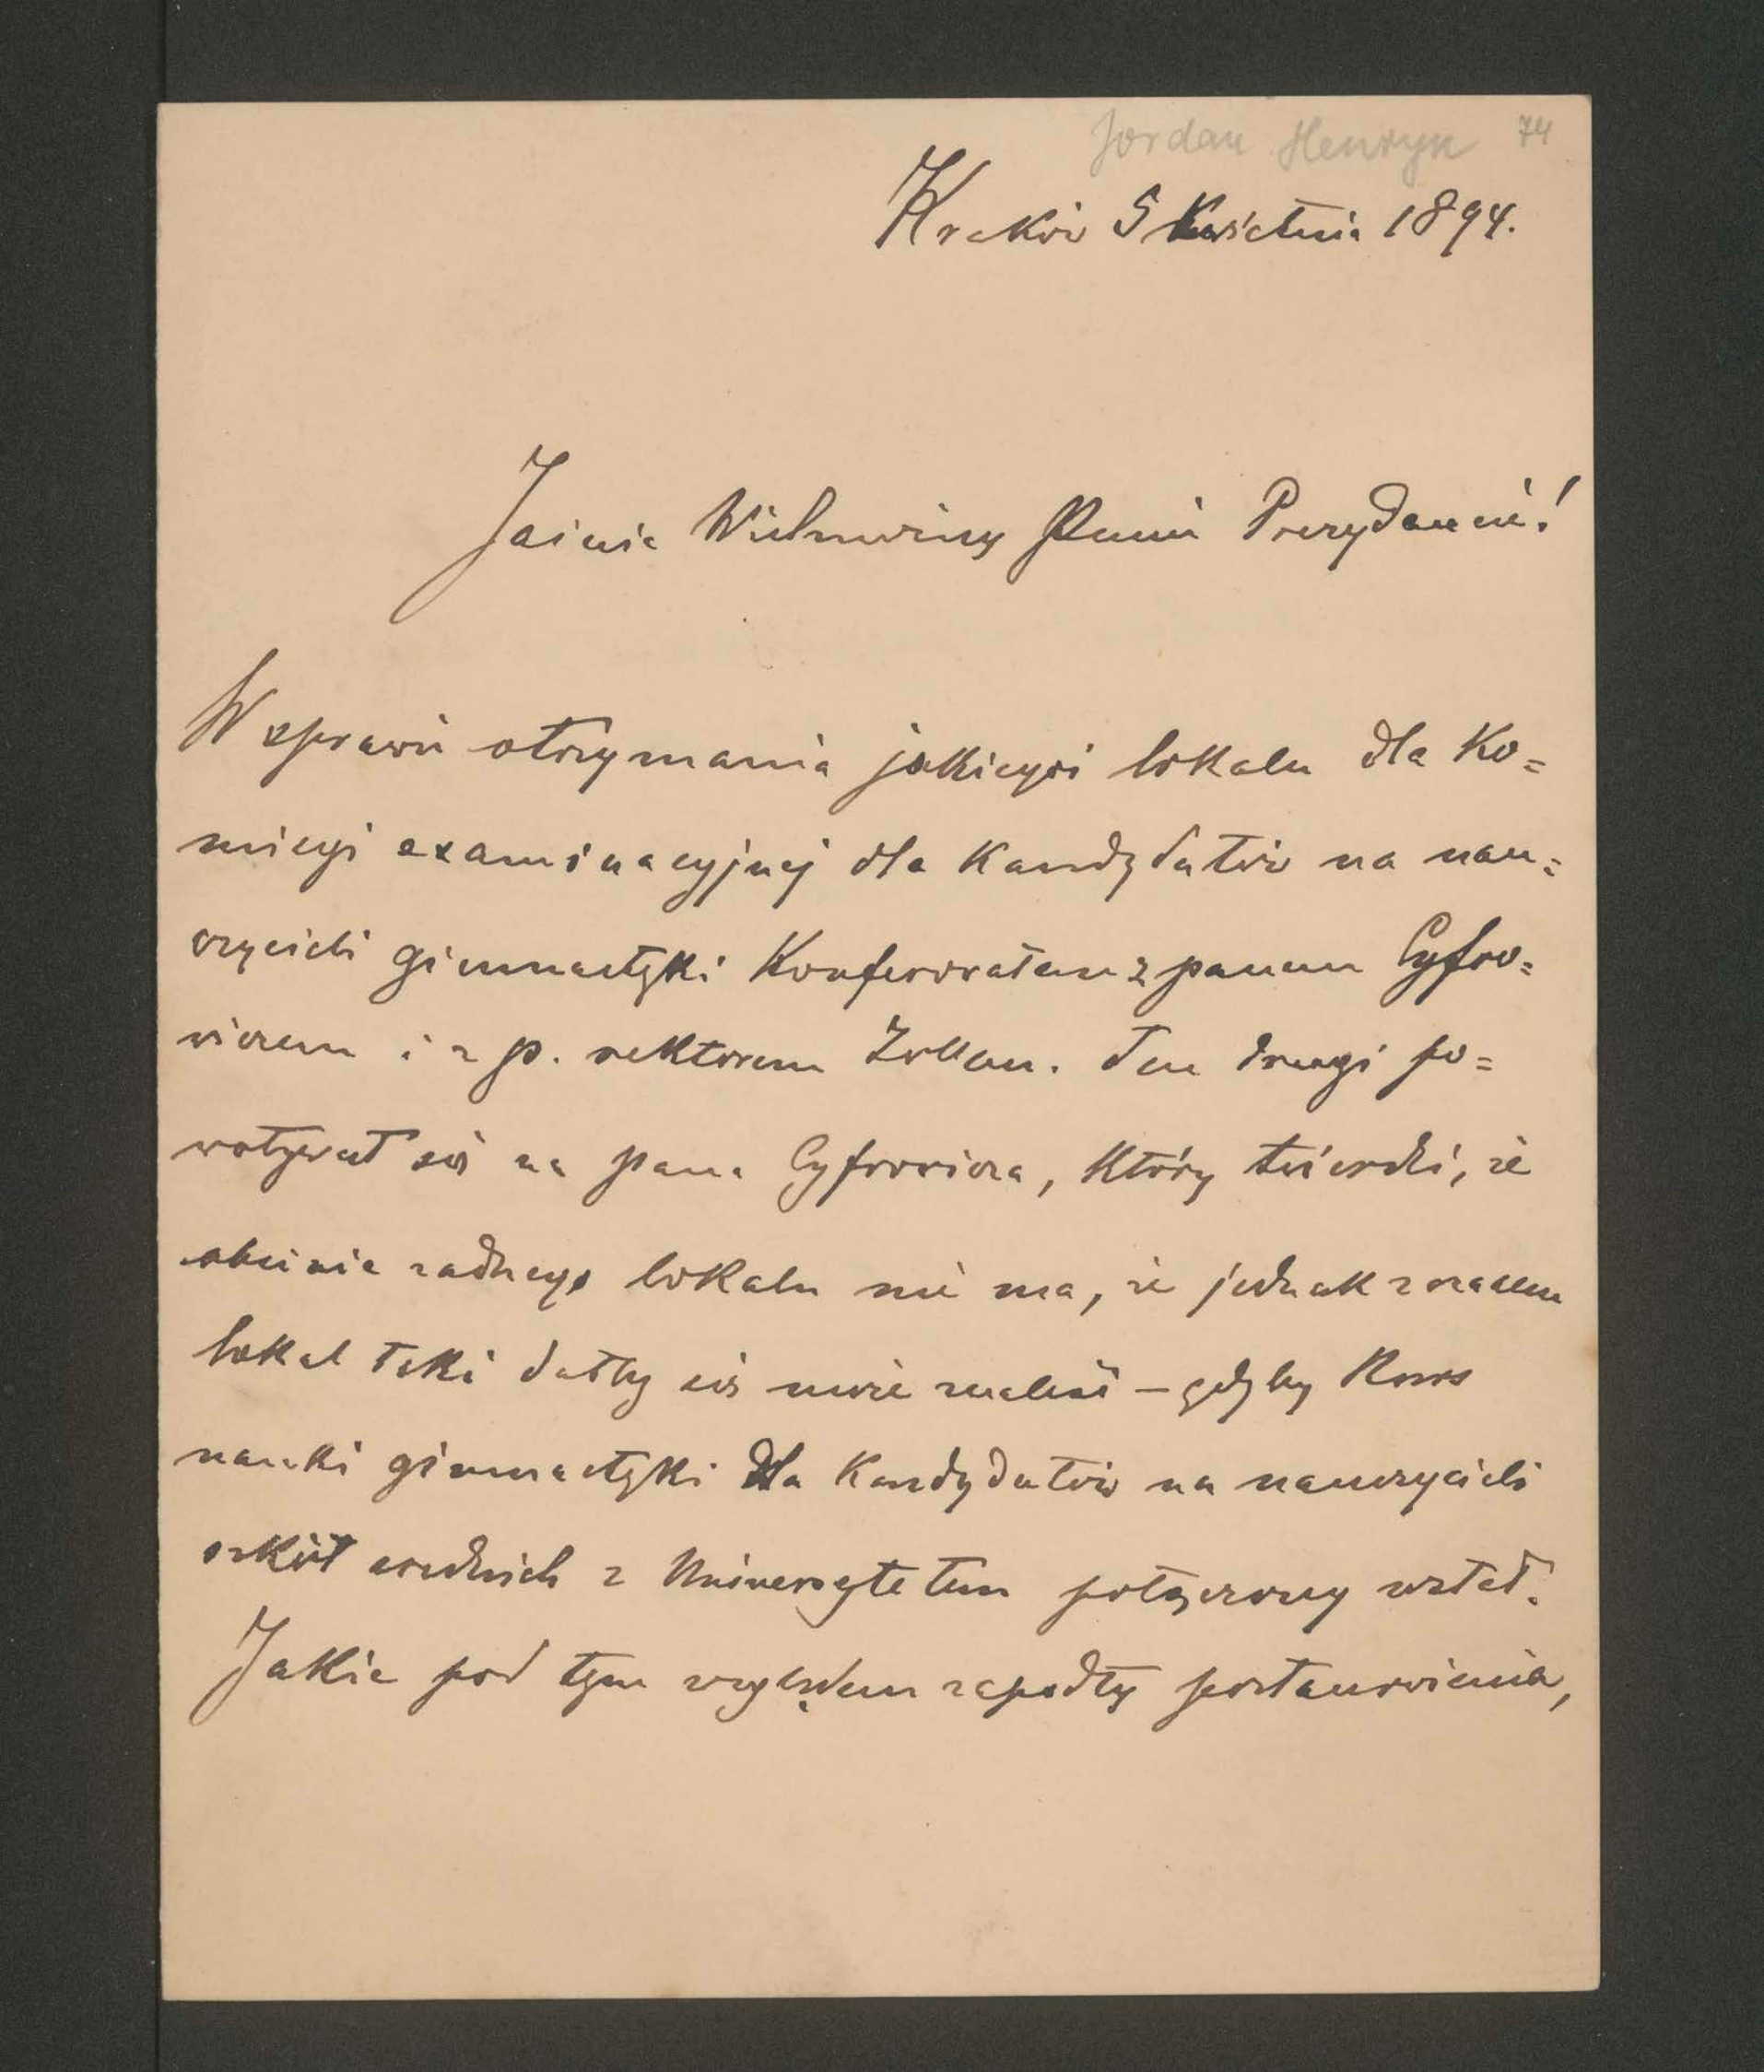 Jordan Henryk 74
Kraków 5 Kwietnia 1894.
Jaśnie Wielmożny Panie Prezydencie!
W sprawie otrzymania jakiegoś lokalu dla Ko=
misyi examinacyjnej dla Kandydatów na nau=
czycieli gimnastyki Konferowałem z panem Cyfro=
wiczem i z p. rektorem Zollem. Ten drugi po=
woływał się na pana Cyfrowicza, który twierdzi, że
obecnie żadnego lokalu nie ma, że jednak z czasem
lokal taki dałby się może znaleść – gdyby Kurs
nauki gimnastyki dla Kandydatów na nauczycieli
szkół średnich z Uniwersytetem połączony został.
Jakie pod tym względem zapadły postanowienia,